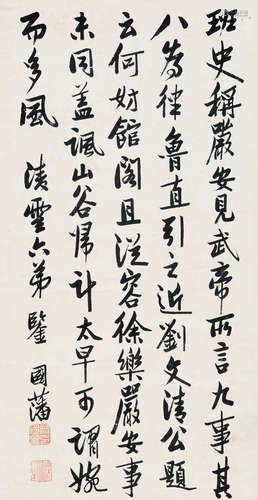 班史稱嚴安見武帝所言九事其
八為律魯直引之近劉文清公題
云何妨館閣且從容徐樂嚴安事
未同蓋諷山谷歸計太早可謂婉
而多風
凌雲六弟鑒 國藩